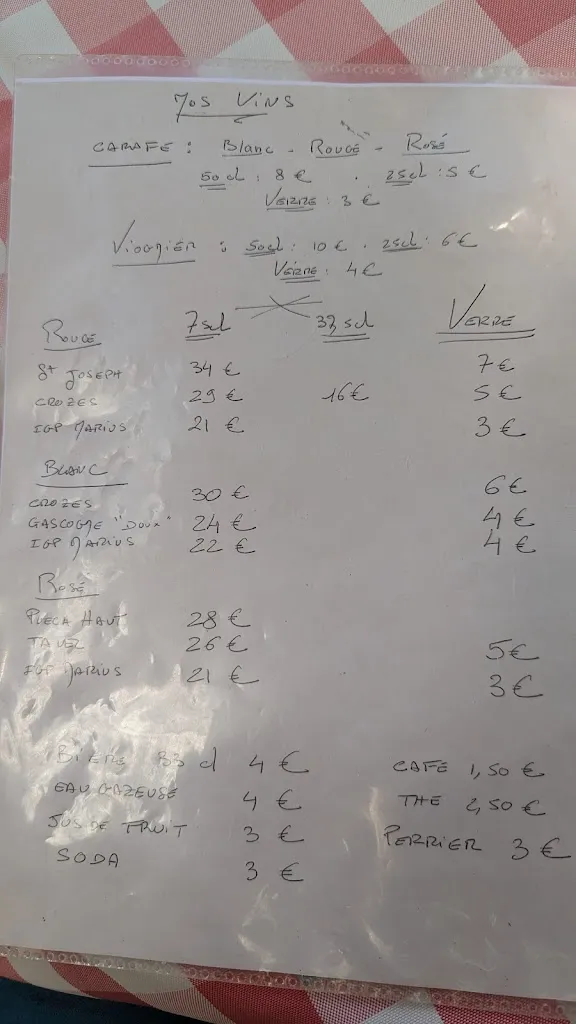 Nos Vins
CARAFE : Blanc - Rouge - Rosé
50 cl : 8 € . 25cl : 5 €
VERRE : 3 €
Viognier : 50cl : 10 € . 25cl : 6 €
Verre : 4 €
Rouge 75cl 37,5cl Verre
St JOSEPH 34 € 7 €
CROZES 29 € 16 € 5 €
IGP MARIUS 21 € 3 €
Blanc
CROZES 30 € 6 €
GASCOGNE "Doux" 24 € 4 €
IGP MARIUS 22 € 4 €
Rosé
PUECH HAUT 28 €
TAVEL 26 € 5 €
IGP MARIUS 21 € 3 €
BIERE 33 cl 4 € CAFE 1,50 €
EAU GAZEUSE 4 € THE 2,50 €
JUS DE FRUIT 3 € PERRIER 3 €
SODA 3 €